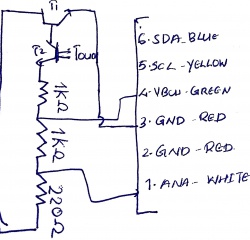 T1
T2
1KΩ
1KΩ
220Ω
6. SDA_BLUE
5. SCL - YELLOW
4. VBUS - GREEN
3. GND - RED
2. GND - RED
1. ANA - WHITE